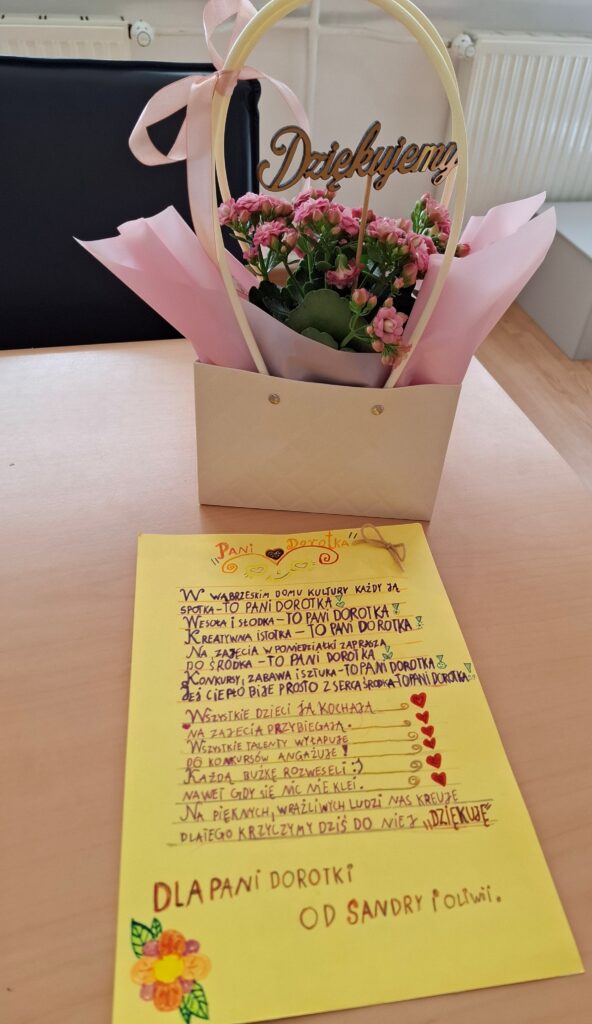 Dziękujemy
"Pani Dorotka"
W WĄBRZESKIM DOMU KULTURY KAŻDY JĄ
SPOTKA - TO PANI DOROTKA!
WESOŁA I SŁODKA - TO PANI DOROTKA!
KREATYWNA ISTOTKA - TO PANI DOROTKA!
NA ZAJĘCIA W PONIEDZIAŁKI ZAPRASZA
DO ŚRODKA - TO PANI DOROTKA!
KONKURSY, ZABAWA I SZTUKA - TO PANI DOROTKA!
JEJ CIEPŁO BIJE PROSTO Z SERCA ŚRODKA - TO PANI DOROTKA!
WSZYSTKIE DZIECI JĄ KOCHAJĄ
NA ZAJĘCIA PRZYBIEGAJĄ.
WSZYSTKIE TALENTY WYŁAPUJE
DO KONKURSÓW ANGAŻUJE!
KAŻDĄ BUŹKĘ ROZWESELI :)
NAWET GDY SIĘ NIC NIE KLEI.
NA PIĘKNYCH, WRAŻLIWYCH LUDZI NAS KREUJE
DLATEGO KRZYCZYMY DZIŚ DO NIEJ „DZIĘKUJĘ"
DLA PANI DOROTKI
OD SANDRY I OLIWII.